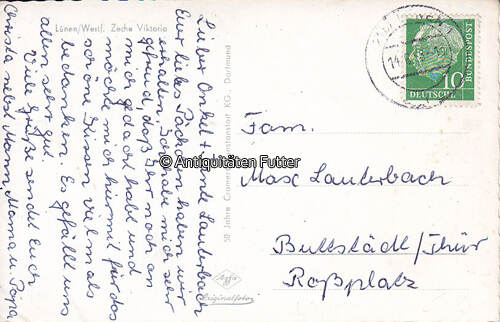 Lünen/Westf. Zeche Viktoria
Lieber Onkel + Tante Lauterbach
Euer liebes Päckchen haben wir
erhalten. Ich habe mich sehr
gefreut, daß Ihr noch an
mich gedacht habt und
möchte mich hiermit für das
schöne Kissen vielmals
bedanken. Es gefällt uns
allen sehr gut.
Viele Grüße sendet Euch
Christa nebst Mann, Mama u. Papa
50 Jahre Cramers Kunstanstalt KG., Dortmund
Agfa
Originalfoto
DEUTSCHE
BUNDESPOST
10
Fam.
Max Lauterbach
Buttstädt/Thür
Roßplatz
© Antiquitäten Futter